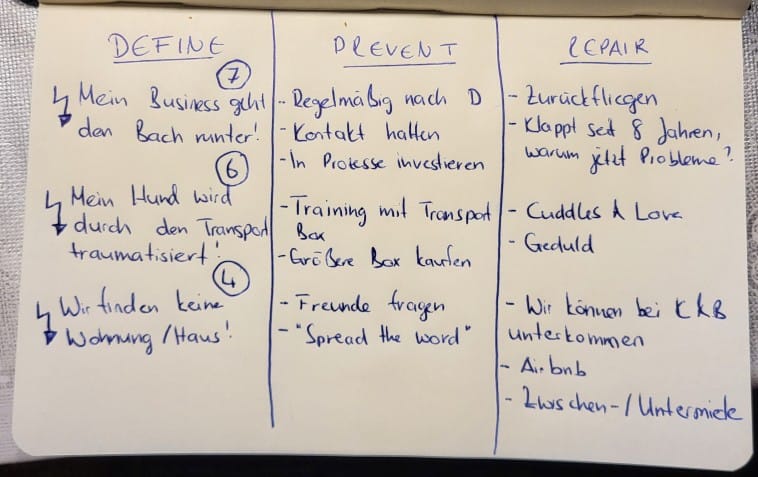 DEFINE
7
Mein Business geht
den Bach runter!
6
Mein Hund wird
durch den Transport
traumatisiert!
4
Wir finden keine
Wohnung/Haus!
PREVENT
- Regelmäßig nach D
- Kontakt halten
- In Prozesse investieren
- Training mit Transport
Box
- Größere Box kaufen
- Freunde fragen
- "Spread the word"
REPAIR
- Zurückfliegen
- Klappt seit 8 Jahren,
warum jetzt Probleme?
- Cuddles & Love
- Geduld
- Wir können bei C & B
unterkommen
- Airbnb
- Zwischen-/Untermiete